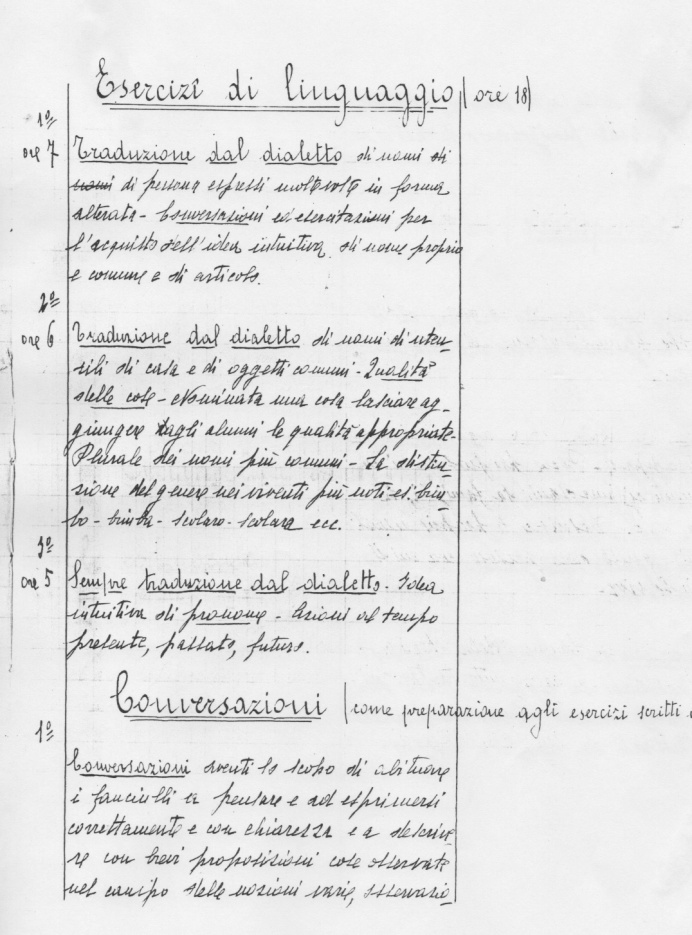 Esercizî di linguaggio (ore 18)
1º
ore 7 Traduzione dal dialetto di nomi di
nomi di persona espressi molte volte in forma
alterata - Conversazioni ed esercitazioni per
l'acquisto dell'idea intuitiva di nome proprio
e comune e di articolo.
2º
ore 6 Traduzione dal dialetto di nomi di uten-
sili di casa e di oggetti comuni - Qualità
delle cose - Nominata una cosa lasciare ag-
giungere dagli alunni le qualità appropriate.
Plurale dei nomi più comuni - La distin-
zione del genere nei viventi più noti es. bim-
bo - bimba - scolaro - scolara ecc.
3º
ore 5 Sempre traduzione dal dialetto. Idea
intuitiva di pronome - Azioni al tempo
presente, passato, futuro.
Conversazioni (come preparazione agli esercizi scritti
1º
Conversazioni aventi lo scopo di abituare
i fanciulli a pensare e ad esprimersi
correttamente e con chiarezza e a descrive-
re con brevi proposizioni cose osservate
nel campo delle nozioni varie, osservazio